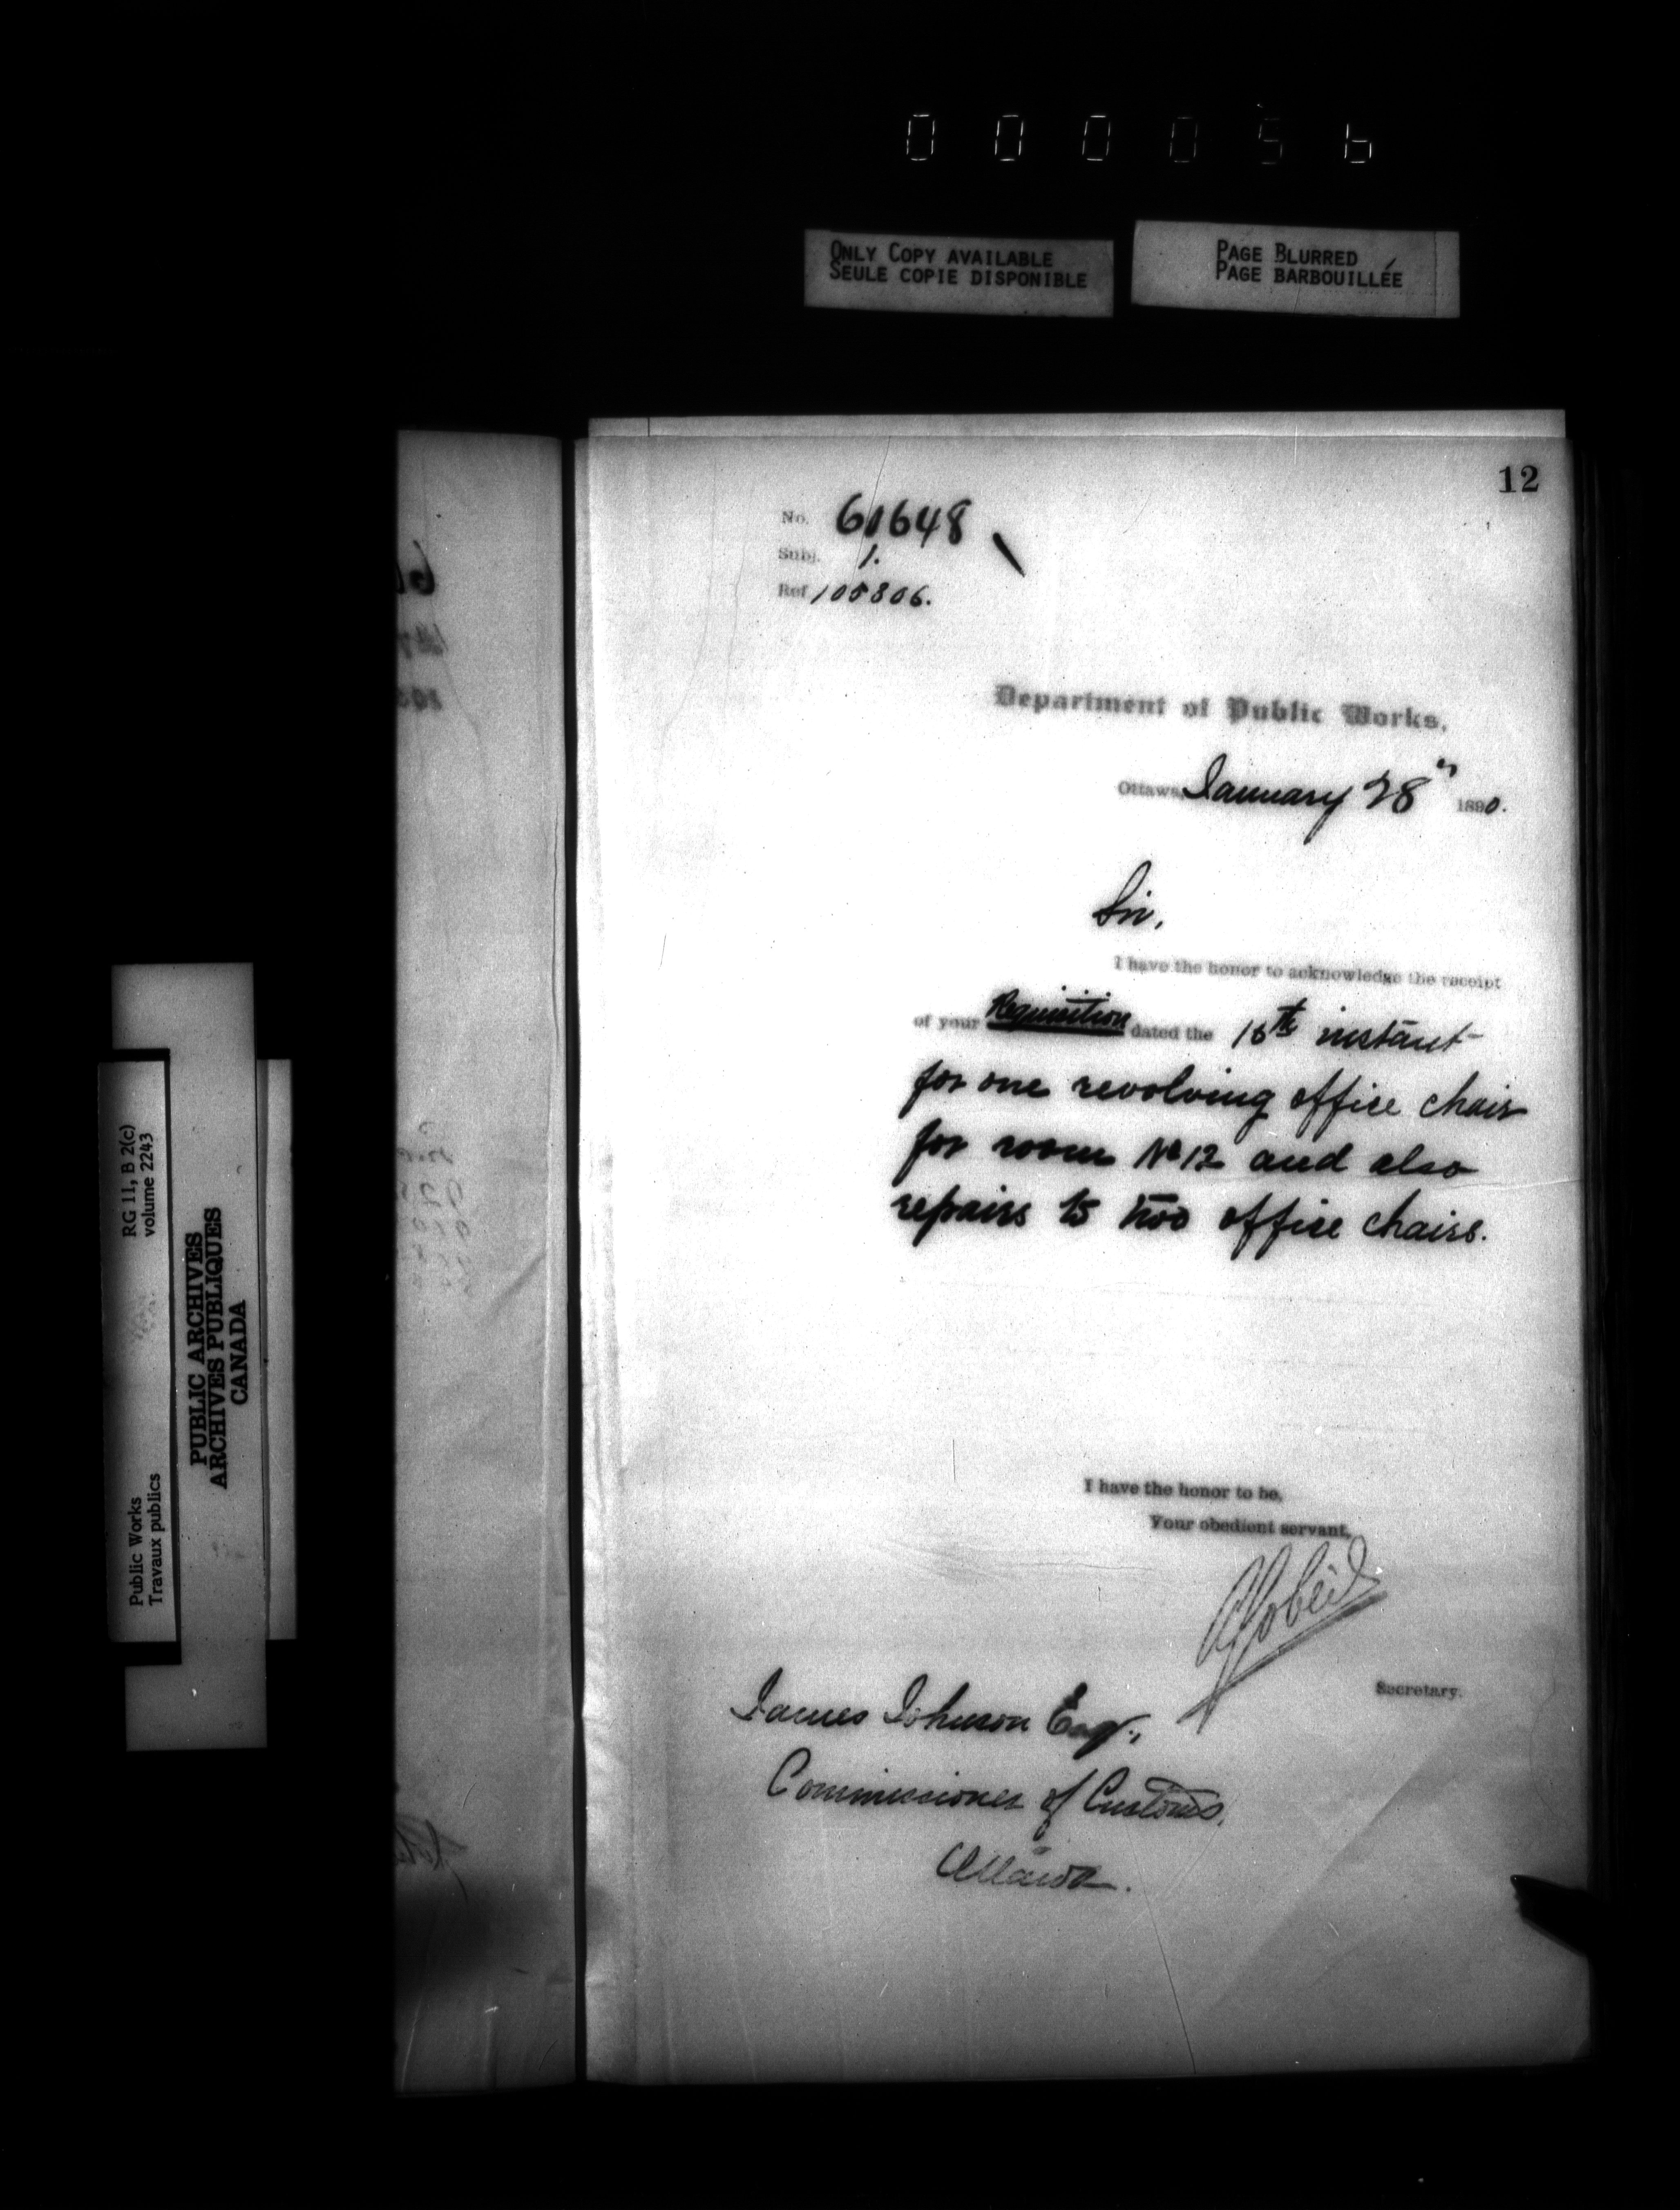 000056
ONLY COPY AVAILABLE
SEULE COPIE DISPONIBLE
PAGE BLURRED
PAGE BARBOUILLÉE
12
No. 61648
Subj. 1.
Ref. 105806.
Department of Public Works,
Ottawa, January 28th 1890.
Sir,
I have the honor to acknowledge the receipt
of your Requisition dated the 16th instant
for one revolving office chair
for room No 12 and also
repairs to two office chairs.
I have the honor to be,
Your obedient servant,
Gobeil
Secretary.
James Johnson Esqr.,
Commissioner of Customs,
Ottawa.
RG 11, B 2(c)
volume 2243
Public Works
Travaux publics
PUBLIC ARCHIVES
ARCHIVES PUBLIQUES
CANADA